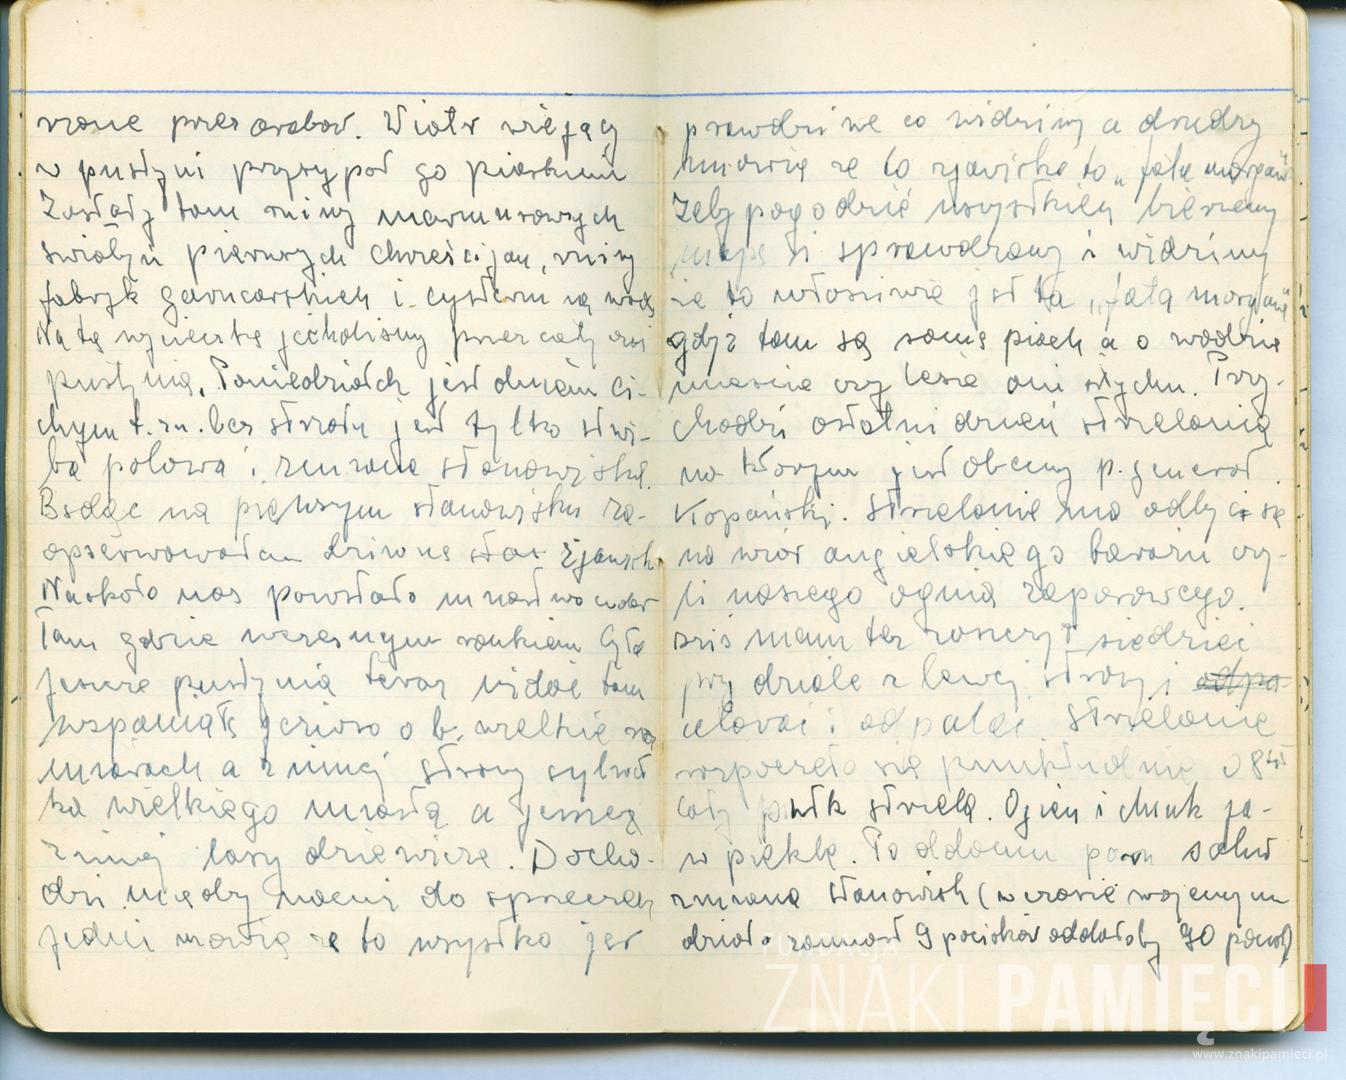 rzone przez arabów. Wiatr wiejący
w pustyni przysypał go piaskiem
Zostały tam ruiny marmurowych
świątyń pierwszych chreścijan, ruiny
fabryk garncarskich i cystern na wodę
Na tę wycieczkę jechaliśmy przez cały czas
pustynią. Poniedziałek jest dniem ci-
chym t.zn. bez strzału jest tylko służ-
ba polowa i zmiana stanowisk.
Będąc na pierwszym stanowisku za-
opserwowałem dziwne zjawisk
Naokoło nas powstało mnustwo cudów
Tam gdzie wczesnym rankiem była
jeszcze pustynia teraz widać tam
wspaniałe jezioro o b. wielkich roz
miarach a z innej strony sylwet
ka wielkiego miasta a jeszcze
z innej lasy dziewicze. Docho-
dzi między nami do sprzeczek
jedni mówią że to wszystko jest
prawdziwe co widzimy a drudzy
mówią że to zjawiska to „fata morgana"
Żeby pogodzić wszystkich bierzemy
i sprawdzamy i widzimy
że to właściwie jest ta „fata morgana"
gdyż tam są same piach a o wodzie
mieście czy lesie ani słychu. Przy-
chodzi ostatni dzień strzelania
na którym jest obecny p. generał
Kopański. Strzelanie ma odbyć się
na wzór angielskiego barażu czy-
li naszego ognia zaporowego.
Dziś mam też zaszczyt siedzieć
przy dziale z lewej strony i odpa-
celować i odpalać. Strzelanie
rozpoczęło się punktualnie o 8tej
cały pułk strzela. Ogień i chuk ja-
w piekle. Po oddaniu paru salw
zmiana stanowisk (w czasie wojennym
działo zamiast 9 pocisków oddałoby 90 pocisk)
FUNDACJA
ZNAKI PAMIĘCI
www.znakipamieci.pl